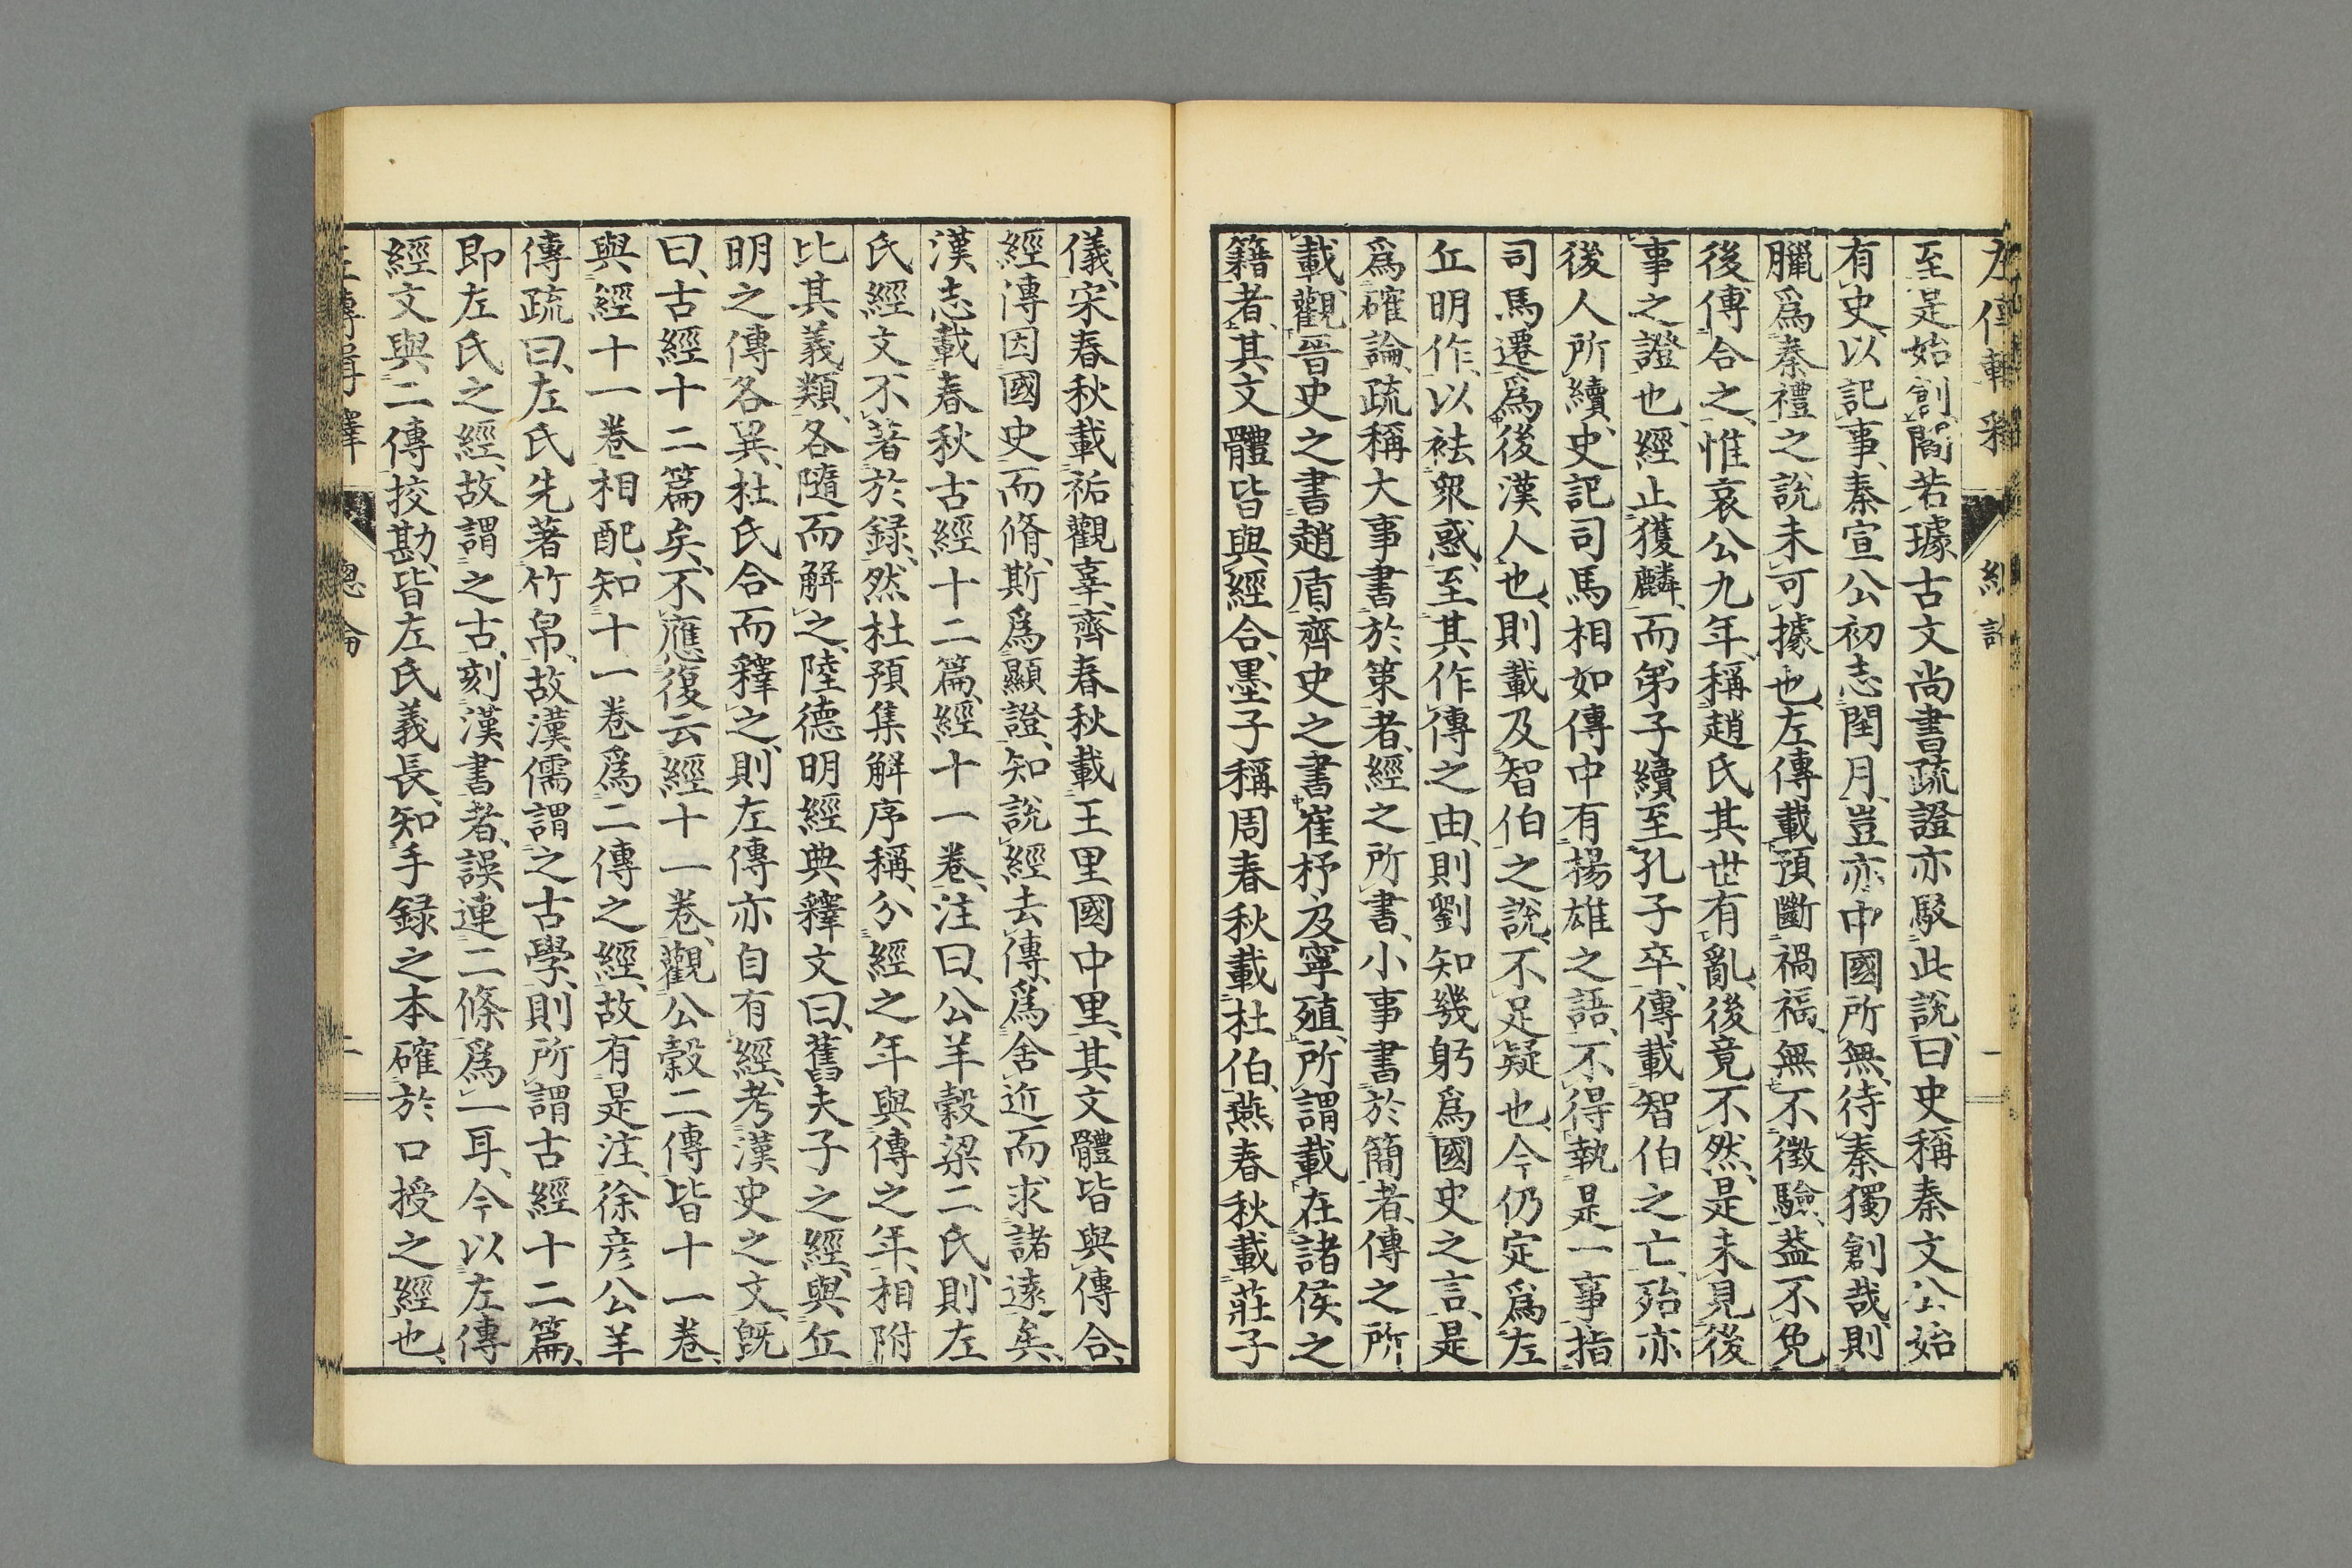 左傳輯釋
總論
至是始創、閻若璩古文尚書疏證亦駁此說、曰史稱秦文公始
有史以記事、秦宣公初志閏月、豈亦中國所無、待秦獨創哉、則
臘爲秦禮之說未可據也、左傳載預斷禍福、無不徵驗、葢不免
後傅合之、惟哀公九年、稱趙氏其世有亂、後竟不然、是未見後
事之證也、經止獲麟、而弟子續至孔子卒、傳載智伯之亡、殆亦
後人所續、史記司馬相如傳中有揚雄之語、不得執是一事指
司馬遷爲後漢人也、則載及智伯之說、不足疑也、今仍定爲左
丘明作、以袪衆惑、至其作傳之由、則劉知幾躬爲國史之言、是
爲確論、疏稱大事書於策者、經之所書、小事書於簡者、傳之所
載、觀晉史之書趙盾、齊史之書崔杼、及寧殖、所謂載在諸侯之
籍者、其文體皆與經合、墨子稱周春秋載杜伯、燕春秋載莊子
儀、宋春秋載祏觀辜、齊春秋載王里國中里、其文體皆與傳合、
經傳因國史而脩、斯爲顯證、知說經去傳、爲舍近而求諸遠矣、
漢志載春秋古經十二篇、經十一卷、注曰、公羊穀梁二氏、則左
氏經文不著於録、然杜預集解序稱、分經之年與傳之年、相附
比其義類、各隨而解之、陸德明經典釋文曰、舊夫子之經、與丘
明之傳各異、杜氏合而釋之、則左傳亦自有經、考漢史之文、既
曰、古經十二篇矣、不應復云經十一卷、觀公穀二傳皆十一卷、
與經十一卷相配、知十一卷爲二傳之經、故有是注、徐彦公羊
傳疏曰、左氏先著竹帛、故漢儒謂之古學、則所謂古經十二篇、
即左氏之經、故謂之古、刻漢書者、誤連二條爲一耳、今以左傳
經文與二傳挍勘、皆左氏義長、知手録之本確於口授之經也、